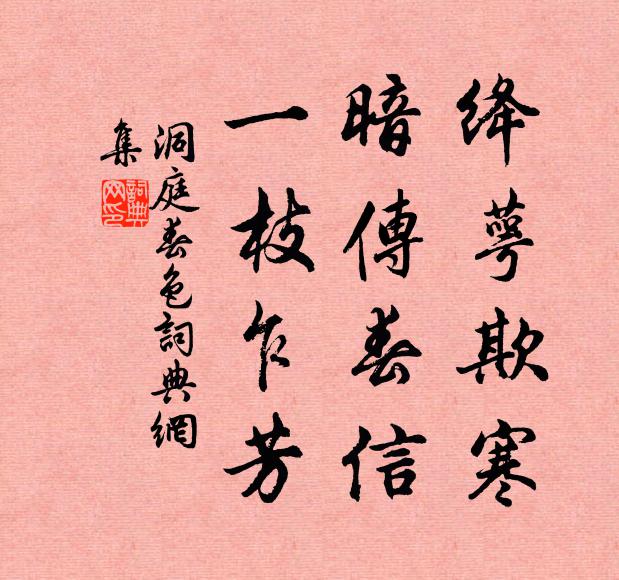 绛萼欺寒
暗傳春信
一枝乍芳
洞庭春色詞典網
集
詞典
网印